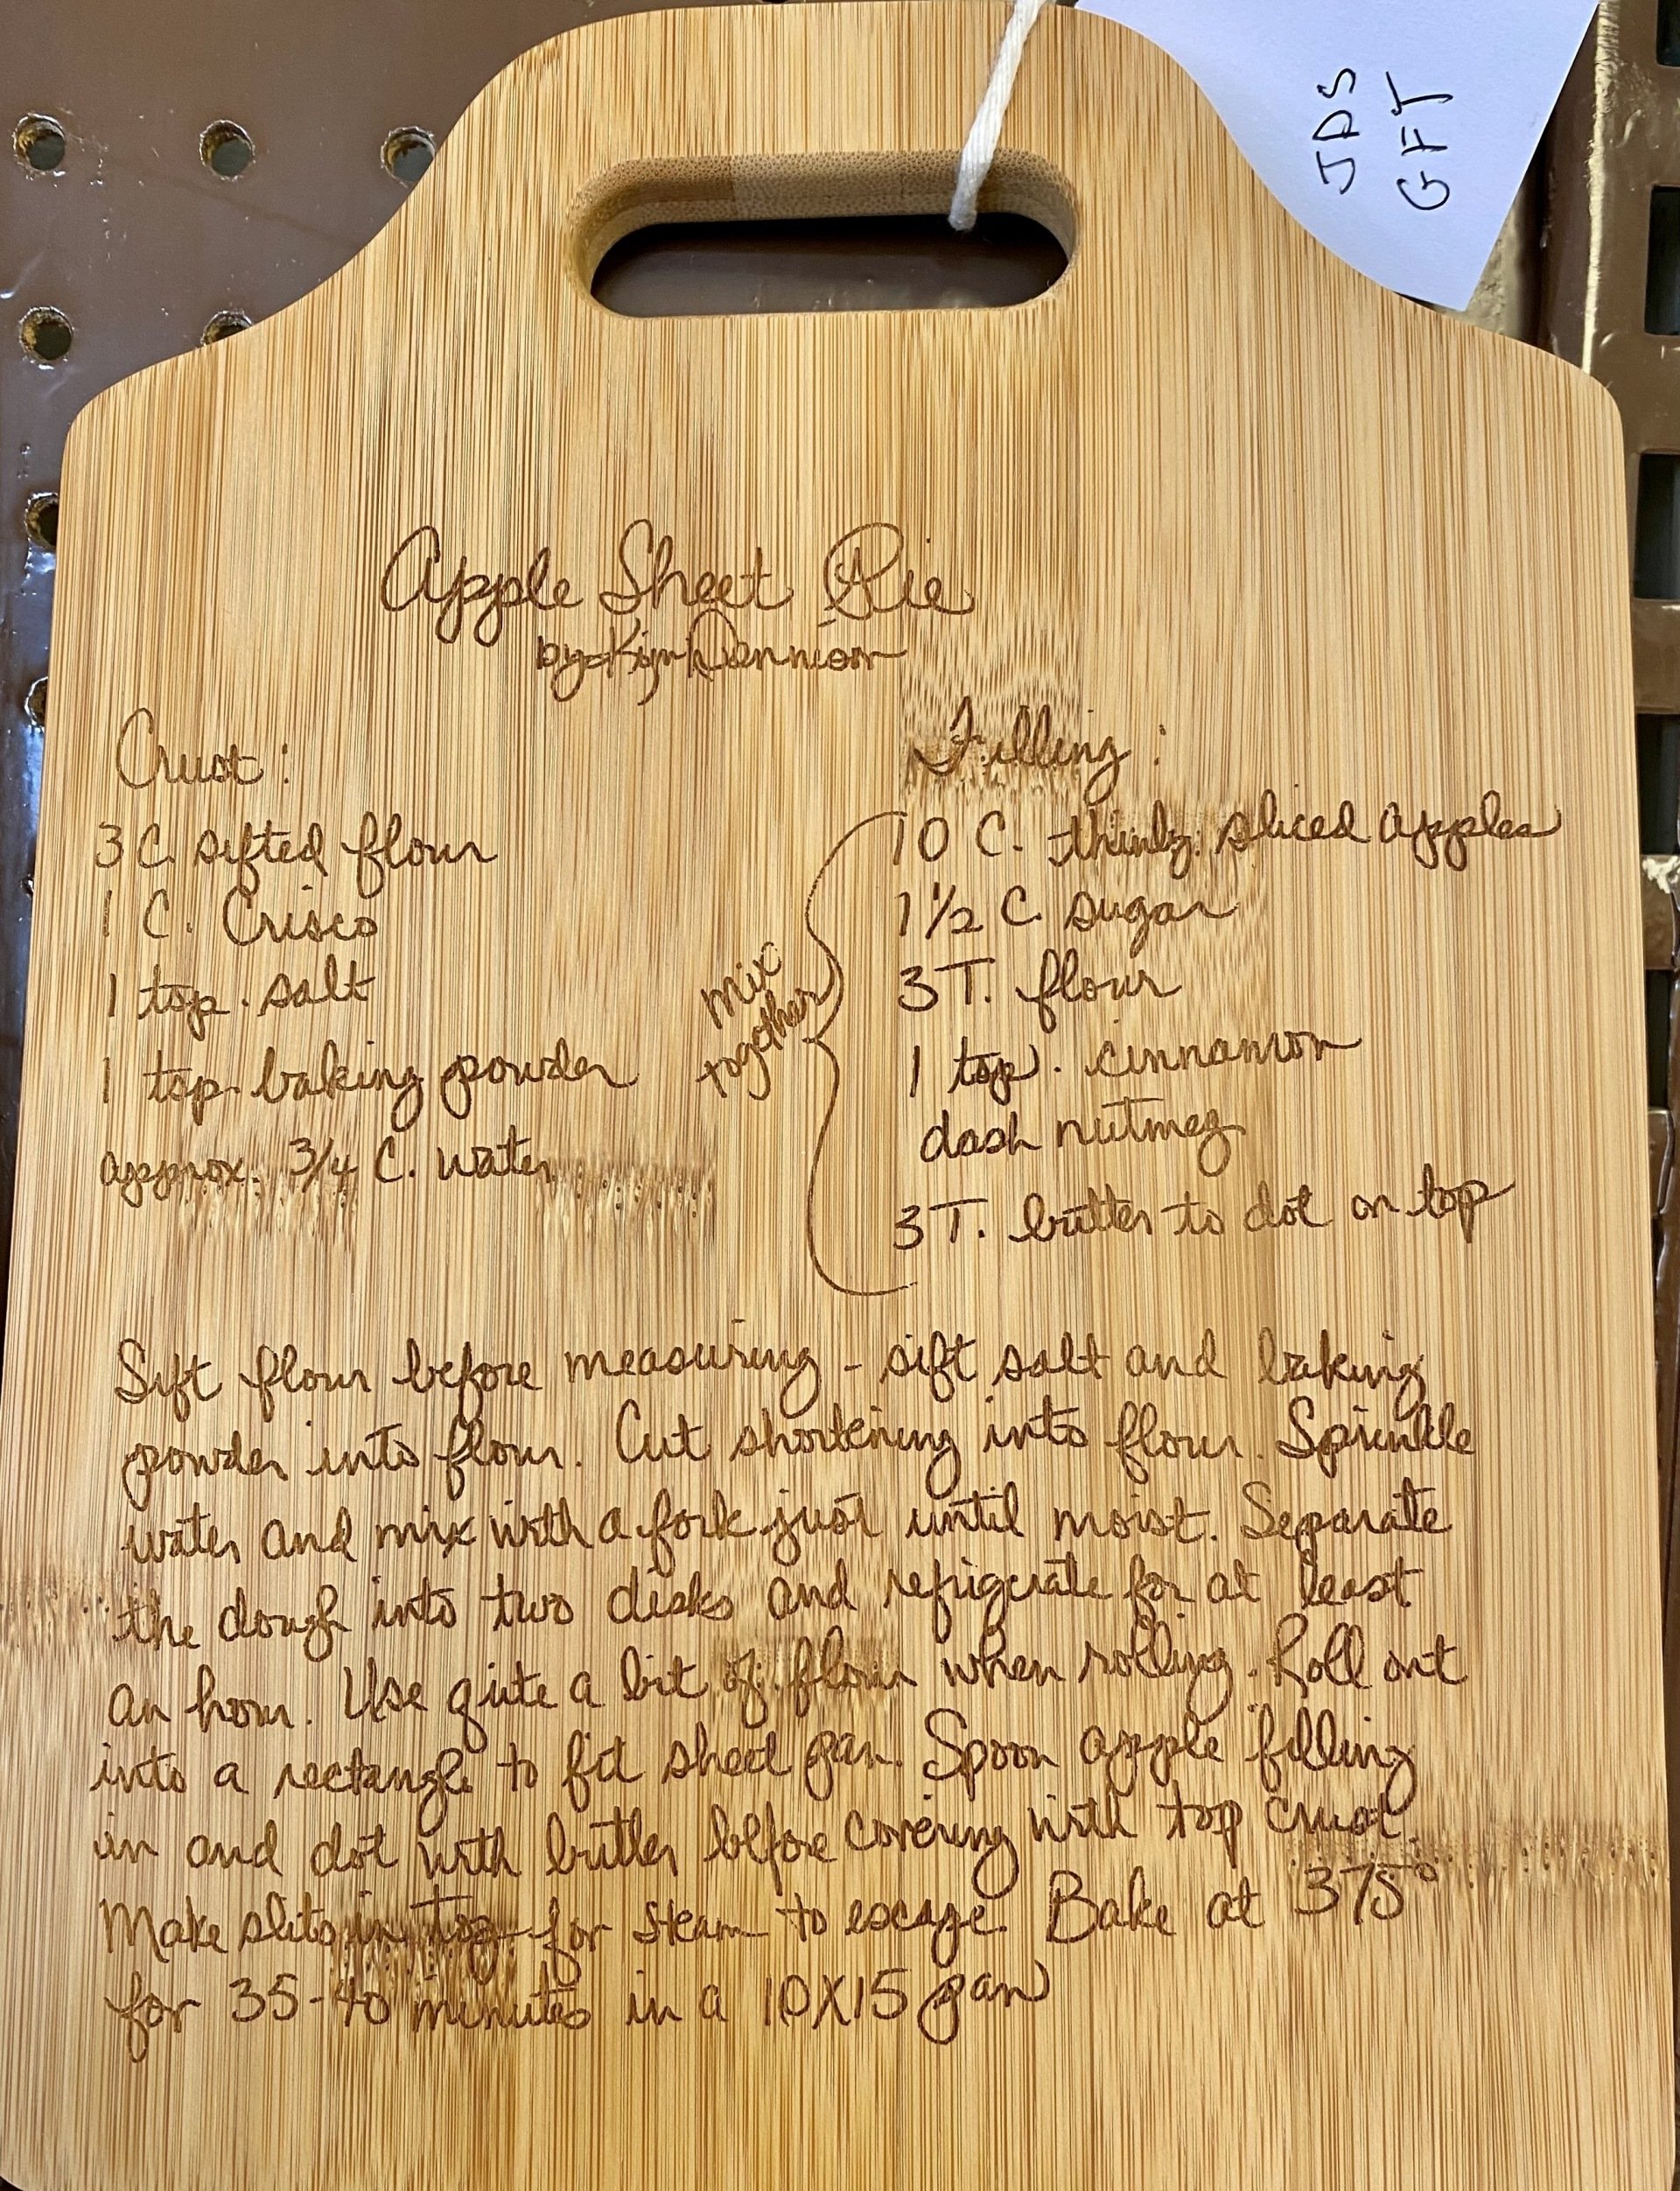 JDS
GFT
Apple Sheet Pie
by Kim Dannion
Crust:
3 C. sifted flour
1 C. Crisco
1 tsp. salt
1 tsp. baking powder
approx. 3/4 C. water
mix
together
Filling:
10 C. thinly sliced apples
1 1/2 C. sugar
3 T. flour
1 tsp. cinnamon
dash nutmeg
3 T. butter to dot on top
Sift flour before measuring - sift salt and baking
powder into flour. Cut shortening into flour. Sprinkle
water and mix with a fork just until moist. Separate
the dough into two disks and refrigerate for at least
an hour. Use quite a bit of flour when rolling. Roll out
into a rectangle to fit sheet pan. Spoon apple filling
in and dot with butter before covering with top crust.
Make slits in top for steam to escape. Bake at 375°
for 35-40 minutes in a 10X15 pan